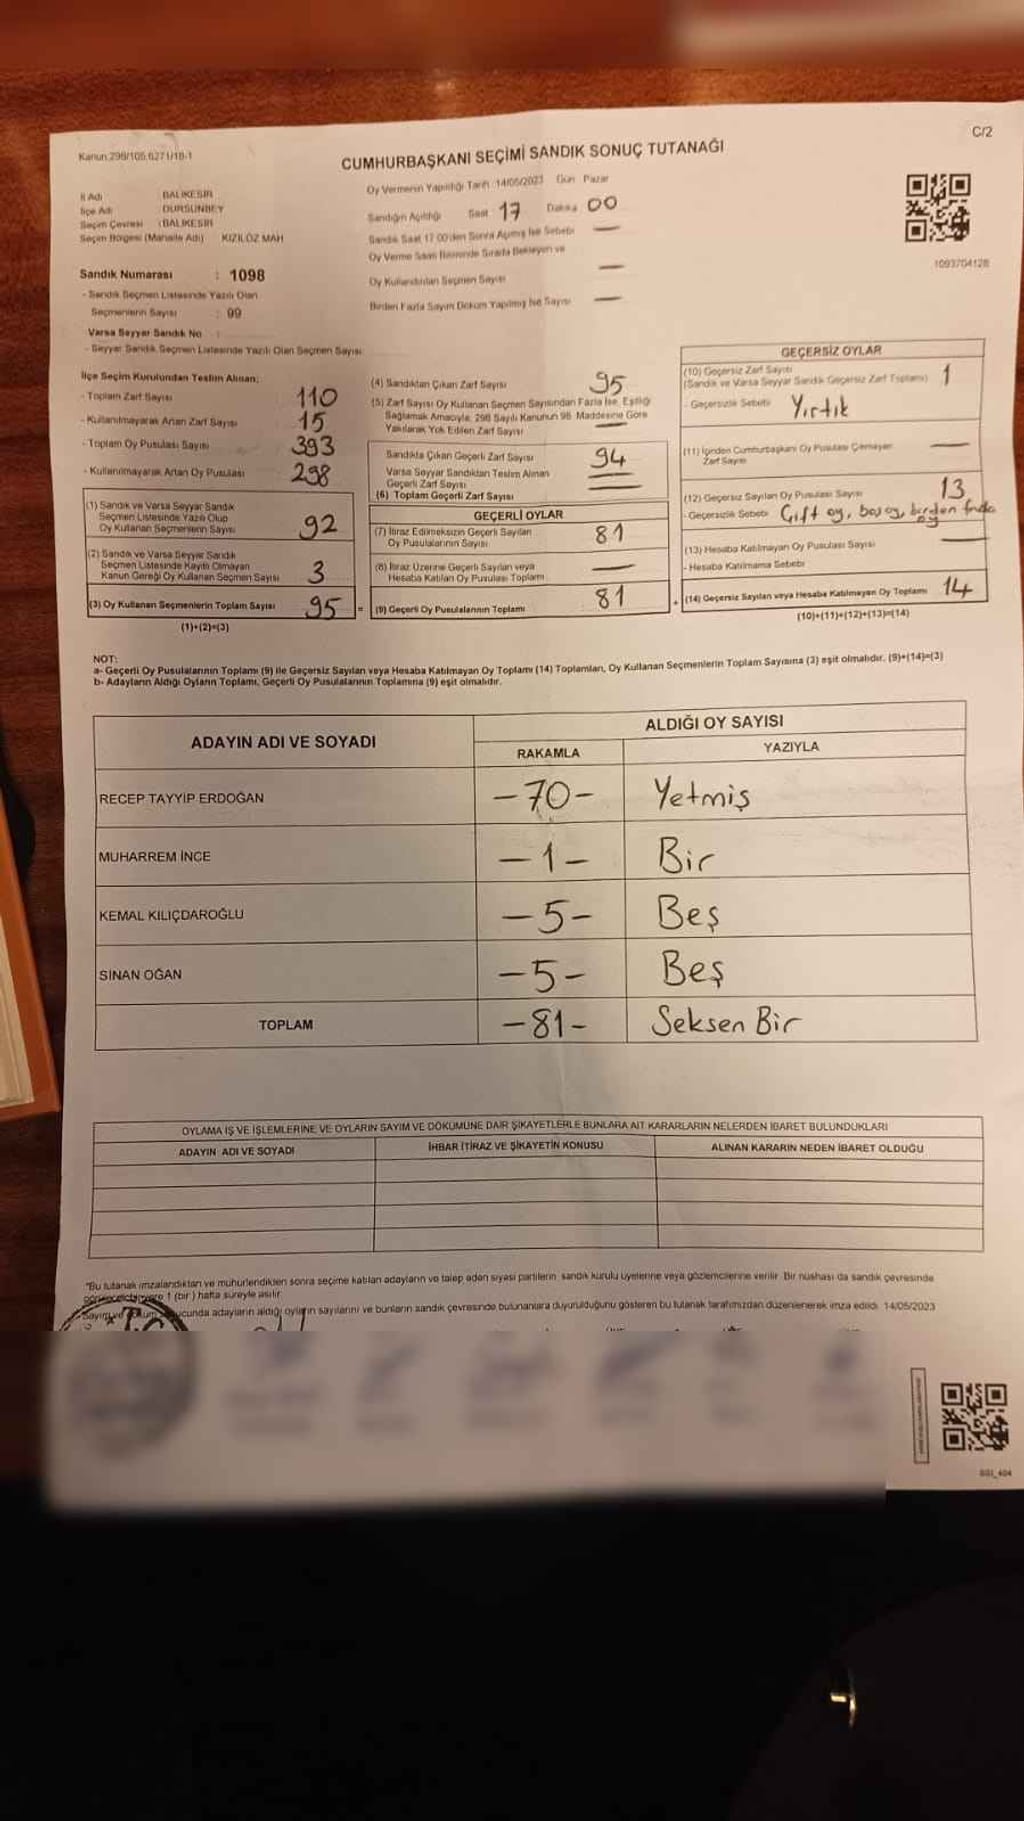 C/2
Kanun:298/105,6271/18-1
CUMHURBAŞKANI SEÇİMİ SANDIK SONUÇ TUTANAĞI
İl Adı BALIKESİR
İlçe Adı DURSUNBEY
Seçim Çevresi : BALIKESİR
Seçim Bölgesi (Mahalle Adı) KIZILÖZ MAH
Sandık Numarası : 1098
- Sandık Seçmen Listesinde Yazılı Olan
Seçmenlerin Sayısı : 99
Varsa Seyyar Sandık No :
- Seyyar Sandık Seçmen Listesinde Yazılı Olan Seçmen Sayısı
Oy Vermenin Yapıldığı Tarih :14/05/2023 Gün Pazar
Sandığın Açıldığı Saat 17 Dakika 00
Sandık Saat 17.00'den Sonra Açılmış İse Sebebi —
Oy Verme Saati Bitiminde Sırada Bekleyen ve
Oy Kullandırılan Seçmen Sayısı —
Birden Fazla Sayım Döküm Yapılmış İse Sayısı —
1093704128
İlçe Seçim Kurulundan Teslim Alınan;
- Toplam Zarf Sayısı 110
- Kullanılmayarak Artan Zarf Sayısı 15
- Toplam Oy Pusulası Sayısı 393
- Kullanılmayarak Artan Oy Pusulası 298
(1) Sandık ve Varsa Seyyar Sandık
Seçmen Listesinde Yazılı Olup
Oy Kullanan Seçmenlerin Sayısı 92
(2) Sandık ve Varsa Seyyar Sandık
Seçmen Listesinde Kayıtlı Olmayan
Kanun Gereği Oy Kullanan Seçmen Sayısı 3
(3) Oy Kullanan Seçmenlerin Toplam Sayısı 95
(1)+(2)=(3)
=
(4) Sandıktan Çıkan Zarf Sayısı 95
(5) Zarf Sayısı Oy Kullanan Seçmen Sayısından Fazla İse, Eşitliği
Sağlamak Amacıyla, 298 Sayılı Kanunun 98. Maddesine Göre
Yakılarak Yok Edilen Zarf Sayısı —
Sandıkta Çıkan Geçerli Zarf Sayısı 94
Varsa Seyyar Sandıktan Teslim Alınan
Geçerli Zarf Sayısı —
(6) Toplam Geçerli Zarf Sayısı —
GEÇERLİ OYLAR
(7) İtiraz Edilmeksizin Geçerli Sayılan
Oy Pusulalarının Sayısı 81
(8) İtiraz Üzerine Geçerli Sayılan veya
Hesaba Katılan Oy Pusulası Toplamı —
(9) Geçerli Oy Pusulalarının Toplamı 81
+
GEÇERSİZ OYLAR
(10) Geçersiz Zarf Sayısı
(Sandık ve Varsa Seyyar Sandık Geçersiz Zarf Toplamı) 1
- Geçersizlik Sebebi Yırtık
(11) İçinden Cumhurbaşkanı Oy Pusulası Çıkmayan
Zarf Sayısı —
(12) Geçersiz Sayılan Oy Pusulası Sayısı 13
- Geçersizlik Sebebi Çift oy, boş oy, birden fazla
oy
(13) Hesaba Katılmayan Oy Pusulası Sayısı —
- Hesaba Katılmama Sebebi
(14) Geçersiz Sayılan veya Hesaba Katılmayan Oy Toplamı 14
(10)+(11)+(12)+(13)=(14)
NOT:
a- Geçerli Oy Pusulalarının Toplamı (9) ile Geçersiz Sayılan veya Hesaba Katılmayan Oy Toplamı (14) Toplamları, Oy Kullanan Seçmenlerin Toplam Sayısına (3) eşit olmalıdır. (9)+(14)=(3)
b- Adayların Aldığı Oyların Toplamı, Geçerli Oy Pusulalarının Toplamına (9) eşit olmalıdır.
ADAYIN ADI VE SOYADI
ALDIĞI OY SAYISI
RAKAMLA YAZIYLA
RECEP TAYYİP ERDOĞAN -70- Yetmiş
MUHARREM İNCE -1- Bir
KEMAL KILIÇDAROĞLU -5- Beş
SİNAN OĞAN -5- Beş
TOPLAM -81- Seksen Bir
OYLAMA İŞ VE İŞLEMLERİNE VE OYLARIN SAYIM VE DÖKÜMÜNE DAİR ŞİKAYETLERLE BUNLARA AİT KARARLARIN NELERDEN İBARET BULUNDUKLARI
ADAYIN ADI VE SOYADI İHBAR İTİRAZ VE ŞİKAYETİN KONUSU ALINAN KARARIN NEDEN İBARET OLDUĞU
*Bu tutanak imzalandıktan ve mühürlendikten sonra seçime katılan adayların ve talep eden siyasi partilerin sandık kurulu üyelerine veya gözlemcilerine verilir. Bir nüshası da sandık çevresinde
1 (bir) hafta süreyle asılır.
Sayım ve döküm sonucunda adayların aldığı oyların sayılarını ve bunların sandık çevresinde bulunanlara duyurulduğunu gösteren bu tutanak tarafımızdan düzenlenerek imza edildi. 14/05/2023